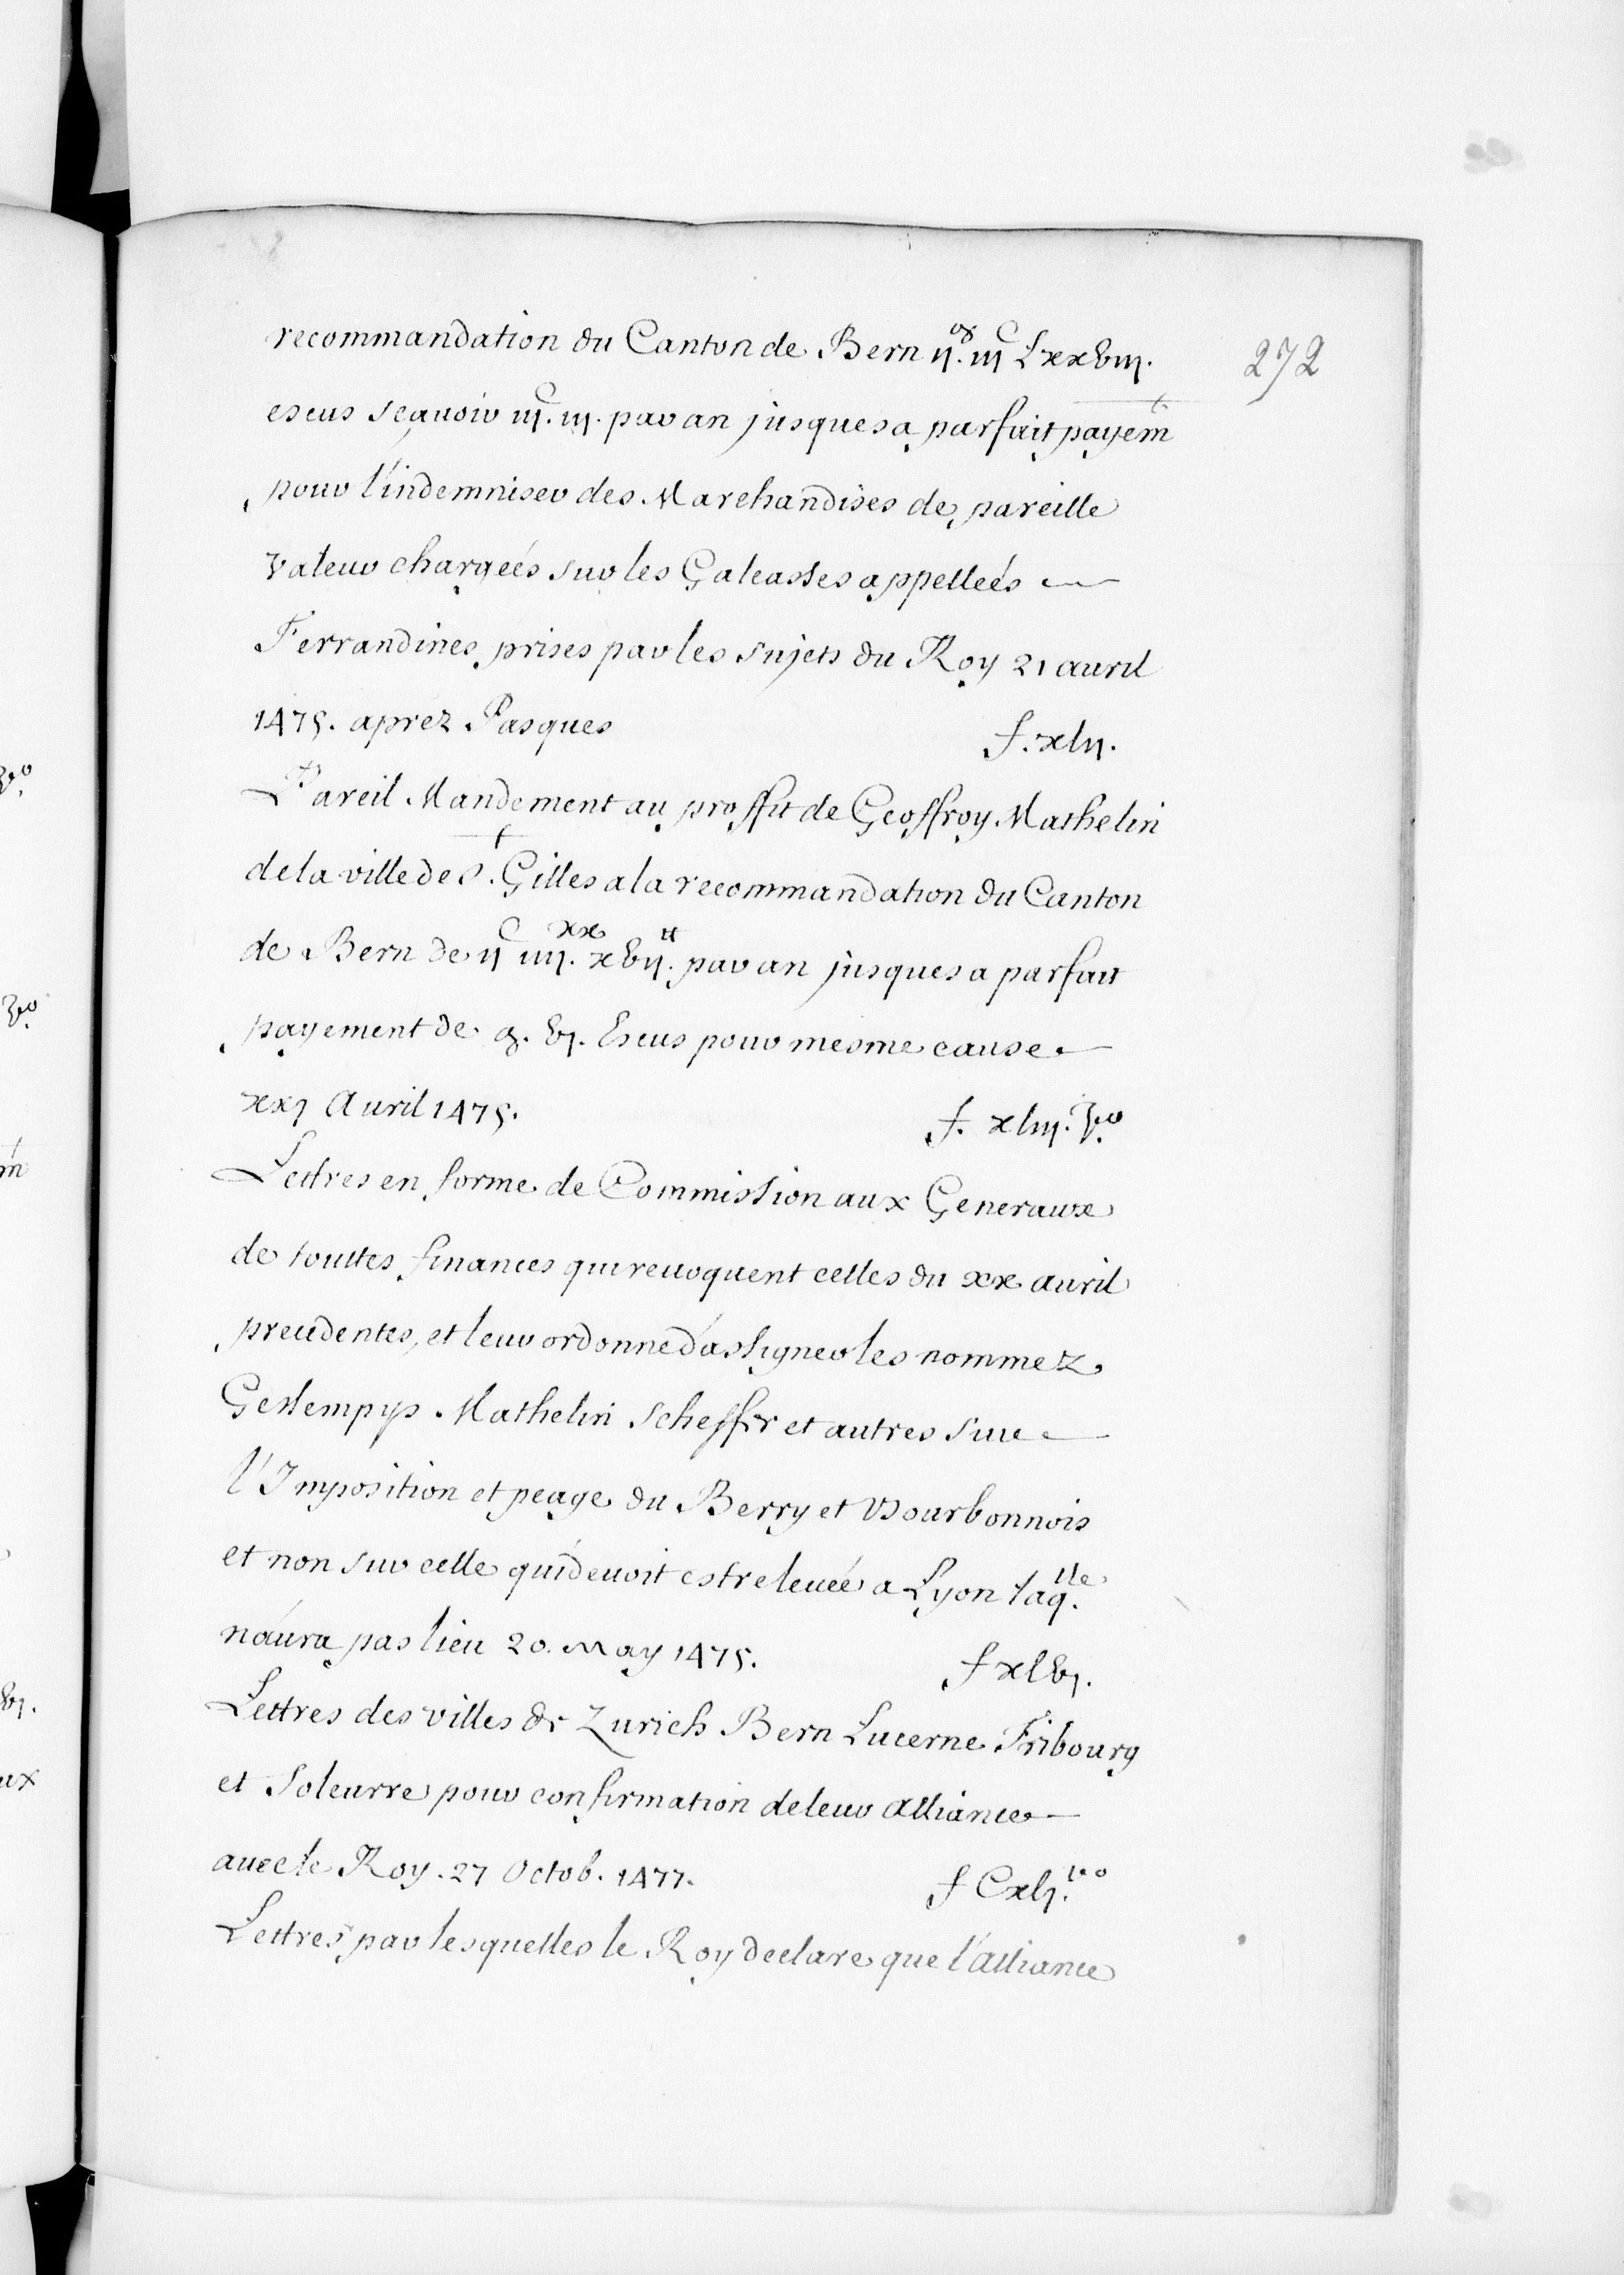 recommandation du Canton de Bern ij. iij C Lxxviij.
272
escus sçauoir iij C. iij. par an jusques a parfait payem̄t
pour l'indemniser des Marchandises de pareille
valeur chargeés sur les Galeasses appelleés
Ferrandines prises par les sujets du Roy 21 auril
1475. aprez Pasques f. xlij.
Pareil Mandement au proffit de Geoffroy Mathelin
de la ville de St. Gilles a la recommandation du Canton
de Bern de ij C iiij xx. xvij tt. par an jusques a parfait
payement de vj. Escus pour mesme cause
xxj Auril 1475. f. xliij. Vo.
Lettres en forme de Commission aux Generaux
de touttes finances qui reuoquent celles du xx auril
precedentes, et leur ordonne d'assigner les nommez
Gestempys Mathelin Scheffer et autres sur
l'Imposition et peage du Berry et Bourbonnois
et non sur celle qui deuoit estre leueé a Lyon laqlle.
n'aura pas lieu 20. May 1475. f xlvj.
Lettres des villes de Zurich Bern Lucerne Fribourg
et Soleurre pour confirmation de leur alliance
auec le Roy. 27 Octob. 1477. f Cxlj. vo
Lettres par lesquelles le Roy declare que l'alliance